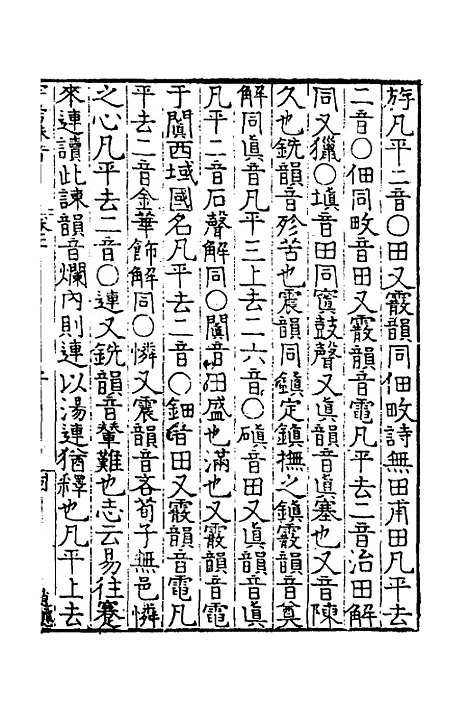 斿凡平二音○田又霰韻同佃畋詩無田甫田凡平去
二音○佃同畋音田又霰韻音電凡平去二音治田解
同又獵○塡音田同窴鼓聲又眞韻音眞塞也又音陳
久也銑韻音殄苦也震韻同鎭定鎭撫之鎭霰韻音奠
解同眞音凡平三上去二六音○磌音田又眞韻音眞
凡平二音石聲解同○闐音田盛也滿也又霰韻音電
于闐西域國名凡平去二音○鈿音田又霰韻音電凡
平去二音金華飾解同○憐又震韻音吝荀子無邑憐
之心凡平去二音○連又銑韻音輦難也志云易往蹇
來連讀此諫韻音爛內則連以湯連猶釋也凡平上去